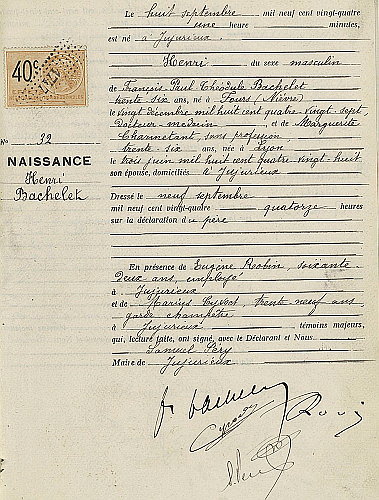 Le huit septembre mil neuf cent vingt-quatre
une heure minutes,
est né à Jujurieux
Henri du sexe masculin
de François Paul Théodule Bachelet
trente six ans, né à Fours (Nièvre)
le vingt décembre mil huit cent quatre vingt sept
Docteur medecin et de Marguerite
Channetant, sans profession
trente six ans, née à Lyon
le trois juin mil huit cent quatre vingt-huit
son épouse, domiciliés à Jujurieux
40c
No 32
NAISSANCE
Henri
Bachelet
Dressé le neuf septembre
mil neuf cent vingt-quatre quatorze heures
sur la déclaration d u père
En présence de Eugène Robin, soixante
deux ans, employé
à Jujurieux
et de Marius trente neuf ans
garde champêtre
à Jujurieux témoins majeurs,
qui, lecture faite, ont signé, avec le Déclarant et Nous
Samuel Péry
Maire de Jujurieux